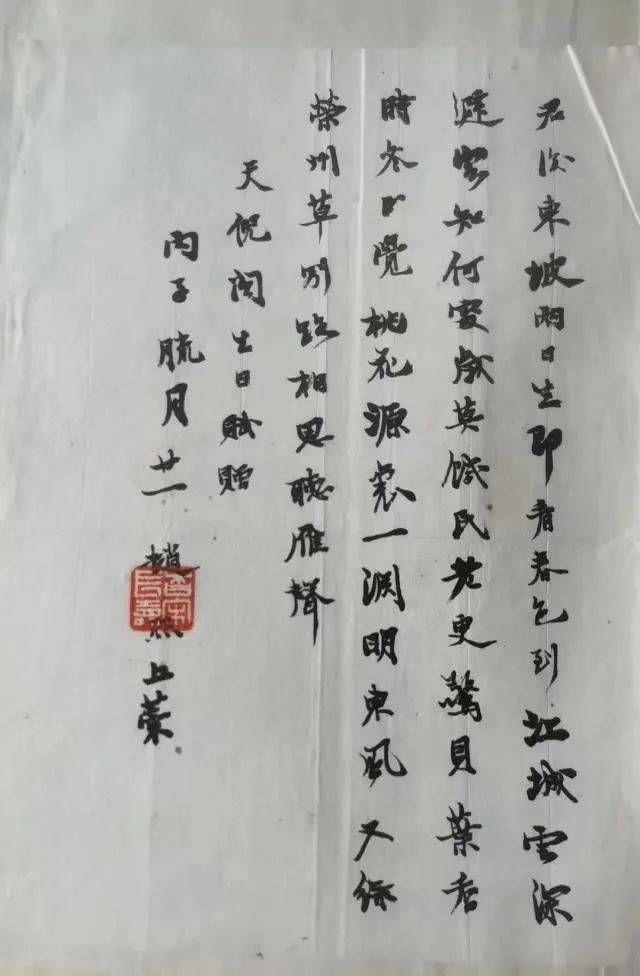 君後東坡兩日生即看春色到江城雲深
遯客知何處歲莫饑民老更驚貝葉香
時參正覺桃花源裏一淵明東風又綠
榮州草別路相思聽雁聲
天倪閣生日賦贈
丙子臘月廿一 趙熙上藁